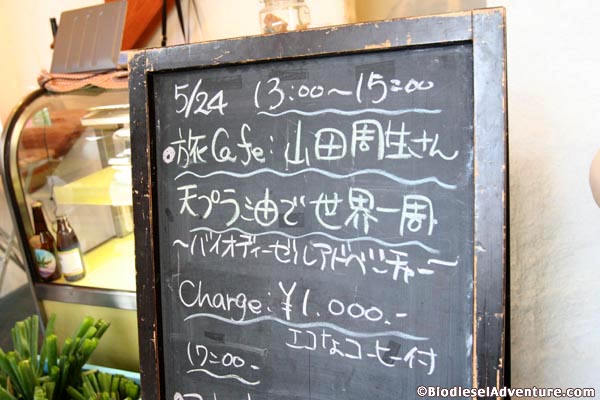 5/24 13:00〜15:00
旅Cafe:山田周生さん
天プラ油で世界一周
〜バイオディーゼルアドベンチャー〜
Charge:¥1,000.-
エコなコーヒー付
17:00-
©BiodieselAdventure.com